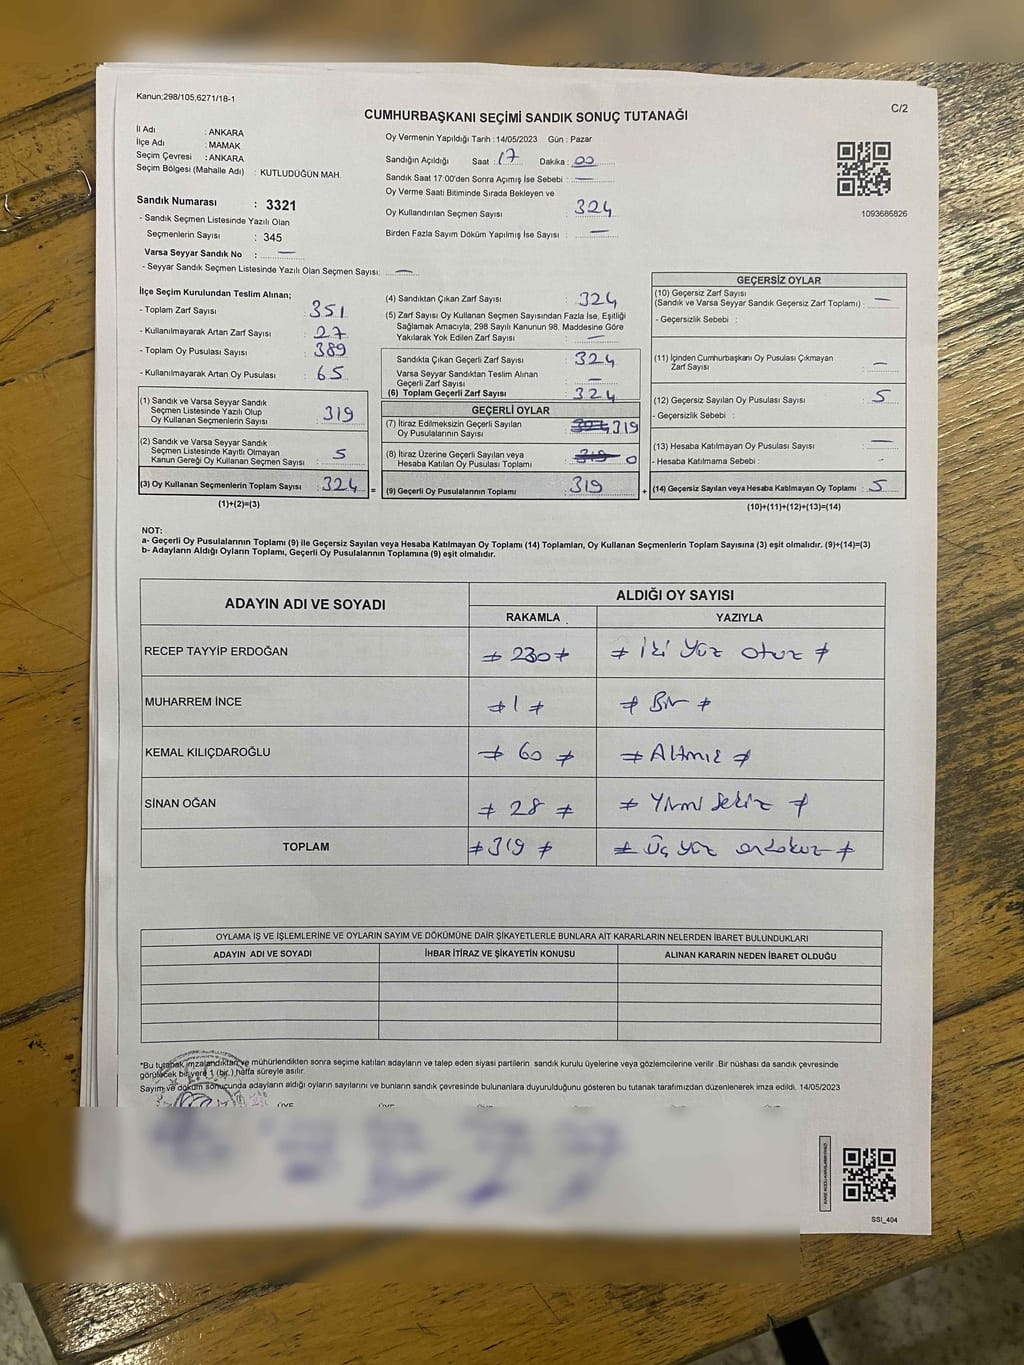 Kanun;298/105,6271/18-1
C/2
CUMHURBAŞKANI SEÇİMİ SANDIK SONUÇ TUTANAĞI
İl Adı : ANKARA
İlçe Adı : MAMAK
Seçim Çevresi : ANKARA
Seçim Bölgesi (Mahalle Adı) : KUTLUDÜĞÜN MAH.
Sandık Numarası : 3321
- Sandık Seçmen Listesinde Yazılı Olan
Seçmenlerin Sayısı : 345
Varsa Seyyar Sandık No : —
- Seyyar Sandık Seçmen Listesinde Yazılı Olan Seçmen Sayısı: —
Oy Vermenin Yapıldığı Tarih :14/05/2023 Gün : Pazar
Sandığın Açıldığı Saat : 17 Dakika : 00
Sandık Saat 17:00'den Sonra Açımış İse Sebebi : —
Oy Verme Saati Bitiminde Sırada Bekleyen ve
Oy Kullandırılan Seçmen Sayısı : 324
Birden Fazla Sayım Döküm Yapılmış İse Sayısı : —
1093686826
İlçe Seçim Kurulundan Teslim Alınan;
- Toplam Zarf Sayısı : 351
- Kullanılmayarak Artan Zarf Sayısı : 27
- Toplam Oy Pusulası Sayısı : 389
- Kullanılmayarak Artan Oy Pusulası : 65
(1) Sandık ve Varsa Seyyar Sandık
Seçmen Listesinde Yazılı Olup
Oy Kullanan Seçmenlerin Sayısı : 319
(2) Sandık ve Varsa Seyyar Sandık
Seçmen Listesinde Kayıtlı Olmayan
Kanun Gereği Oy Kullanan Seçmen Sayısı : 5
(3) Oy Kullanan Seçmenlerin Toplam Sayısı : 324 =
(1)+(2)=(3)
(4) Sandıktan Çıkan Zarf Sayısı : 324
(5) Zarf Sayısı Oy Kullanan Seçmen Sayısından Fazla İse, Eşitliği
Sağlamak Amacıyla; 298 Sayılı Kanunun 98. Maddesine Göre
Yakılarak Yok Edilen Zarf Sayısı : —
Sandıkta Çıkan Geçerli Zarf Sayısı : 324
Varsa Seyyar Sandıktan Teslim Alınan
Geçerli Zarf Sayısı : —
(6) Toplam Geçerli Zarf Sayısı : 324
GEÇERLİ OYLAR
(7) İtiraz Edilmeksizin Geçerli Sayılan
Oy Pusulalarının Sayısı : 324 319
(8) İtiraz Üzerine Geçerli Sayılan veya
Hesaba Katılan Oy Pusulası Toplamı : 319 0
(9) Geçerli Oy Pusulalarının Toplamı : 319 +
GEÇERSİZ OYLAR
(10) Geçersiz Zarf Sayısı
(Sandık ve Varsa Seyyar Sandık Geçersiz Zarf Toplamı) : —
- Geçersizlik Sebebi :
(11) İçinden Cumhurbaşkanı Oy Pusulası Çıkmayan
Zarf Sayısı : —
(12) Geçersiz Sayılan Oy Pusulası Sayısı : 5
- Geçersizlik Sebebi :
(13) Hesaba Katılmayan Oy Pusulası Sayısı : —
- Hesaba Katılmama Sebebi : -
(14) Geçersiz Sayılan veya Hesaba Katılmayan Oy Toplamı : 5
(10)+(11)+(12)+(13)=(14)
NOT:
a- Geçerli Oy Pusulalarının Toplamı (9) ile Geçersiz Sayılan veya Hesaba Katılmayan Oy Toplamı (14) Toplamları, Oy Kullanan Seçmenlerin Toplam Sayısına (3) eşit olmalıdır. (9)+(14)=(3)
b- Adayların Aldığı Oyların Toplamı, Geçerli Oy Pusulalarının Toplamına (9) eşit olmalıdır.
ADAYIN ADI VE SOYADI ALDIĞI OY SAYISI
RAKAMLA YAZIYLA
RECEP TAYYİP ERDOĞAN ≠ 230 ≠ ≠ İki yüz otuz ≠
MUHARREM İNCE ≠ 1 ≠ ≠ Bir ≠
KEMAL KILIÇDAROĞLU ≠ 60 ≠ ≠ Altmış ≠
SİNAN OĞAN ≠ 28 ≠ ≠ Yirmi sekiz ≠
TOPLAM ≠ 319 ≠ ≠ Üç yüz ondokuz ≠
OYLAMA İŞ VE İŞLEMLERİNE VE OYLARIN SAYIM VE DÖKÜMÜNE DAİR ŞİKAYETLERLE BUNLARA AİT KARARLARIN NELERDEN İBARET BULUNDUKLARI
ADAYIN ADI VE SOYADI İHBAR İTİRAZ VE ŞİKAYETİN KONUSU ALINAN KARARIN NEDEN İBARET OLDUĞU
*Bu tutanak imzalandıktan ve mühürlendikten sonra seçime katılan adayların ve talep eden siyasi partilerin sandık kurulu üyelerine veya gözlemcilerine verilir .Bir nüshası da sandık çevresinde
görülecek bir yere 1 (bir ) hafta süreyle asılır.
Sayım ve döküm sonucunda adayların aldığı oyların sayılarını ve bunların sandık çevresinde bulunanlara duyurulduğunu gösteren bu tutanak tarafımızdan düzenlenerek imza edildi. 14/05/2023
SSI_404